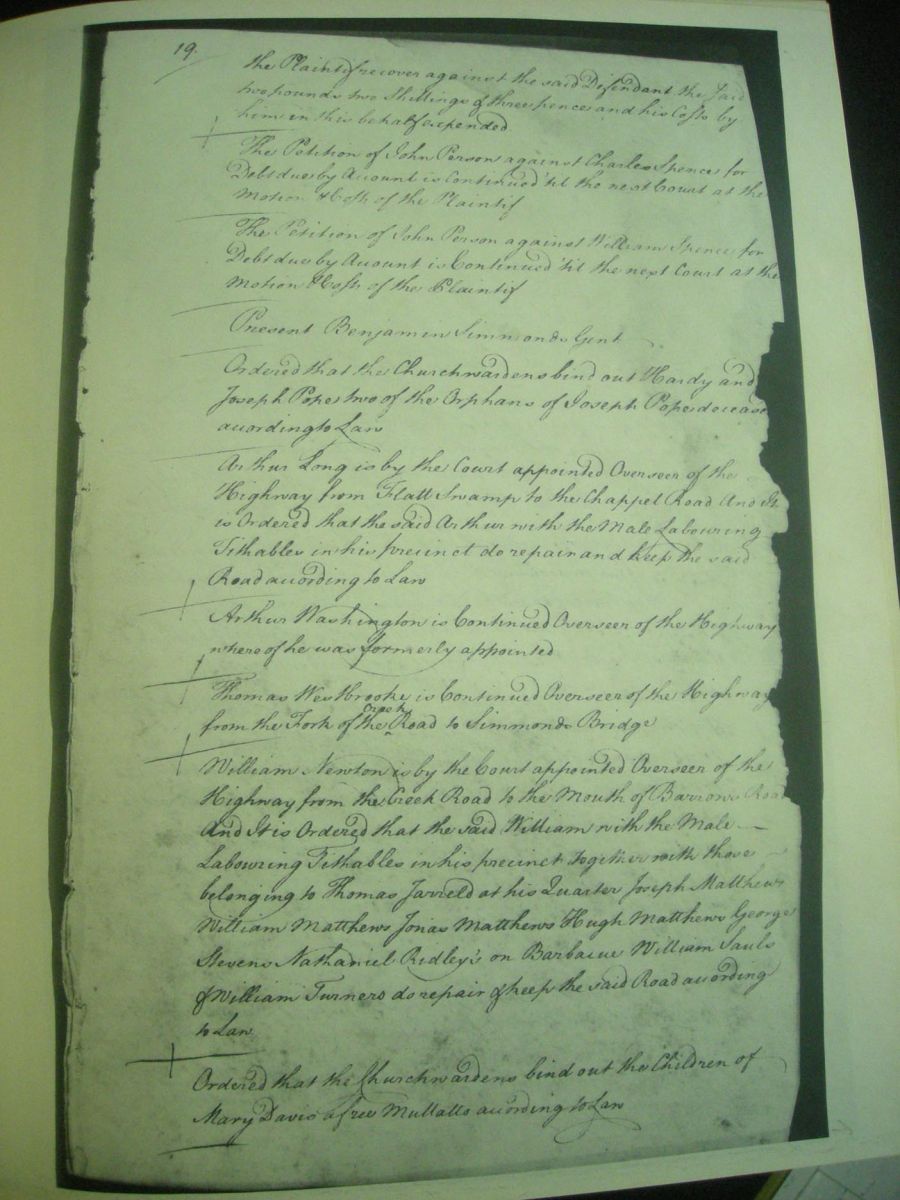 19.
the Plaintif recover against the said Defendant the said
two pounds two Shillings & three pence and his Costs by
him in this behalf expended
The Petition of John Person against Charles Spence for
Debt due by Account is Continued 'til the next Court at the
Motion & Costs of the Plaintif
The Petition of John Person against William Spence for
Debt due by Account is Continued 'til the next Court at the
Motion & Costs of the Plaintif
Present Benjamin Simmonds Gent
Ordered that the Churchwardens bind out Hardy and
Joseph Pope two of the Orphans of Joseph Pope deceas
according to Law
Arthur Long is by the Court appointed Overseer of the
Highway from Flatt Swamp to the Chappel Road And It
is Ordered that the said Arthur with the Male Labouring
Tithables in his precinct do repair and keep the said
Road according to Law
Arthur Washington is Continued Overseer of the Highway
whereof he was formerly appointed
Thomas Westbrooke is Continued Overseer of the Highway
from the Fork of the Creek Road to Simmonds Bridge
William Newton is by the Court appointed Overseer of the
Highway from the Creek Road to the Mouth of Barrows Road
And It is Ordered that the said William with the Male
Labouring Tithables in his precinct together with those
belonging to Thomas Jarreld at his Quarter Joseph Matthews
William Matthews Jonas Matthews Hugh Matthews George
Stevens Nathaniel Ridley's on Barbacue William Sauls
& William Turners do repair & keep the said Road according
to Law
Ordered that the Churchwardens bind out the Children of
Mary Davis a free Mullatto according to Law